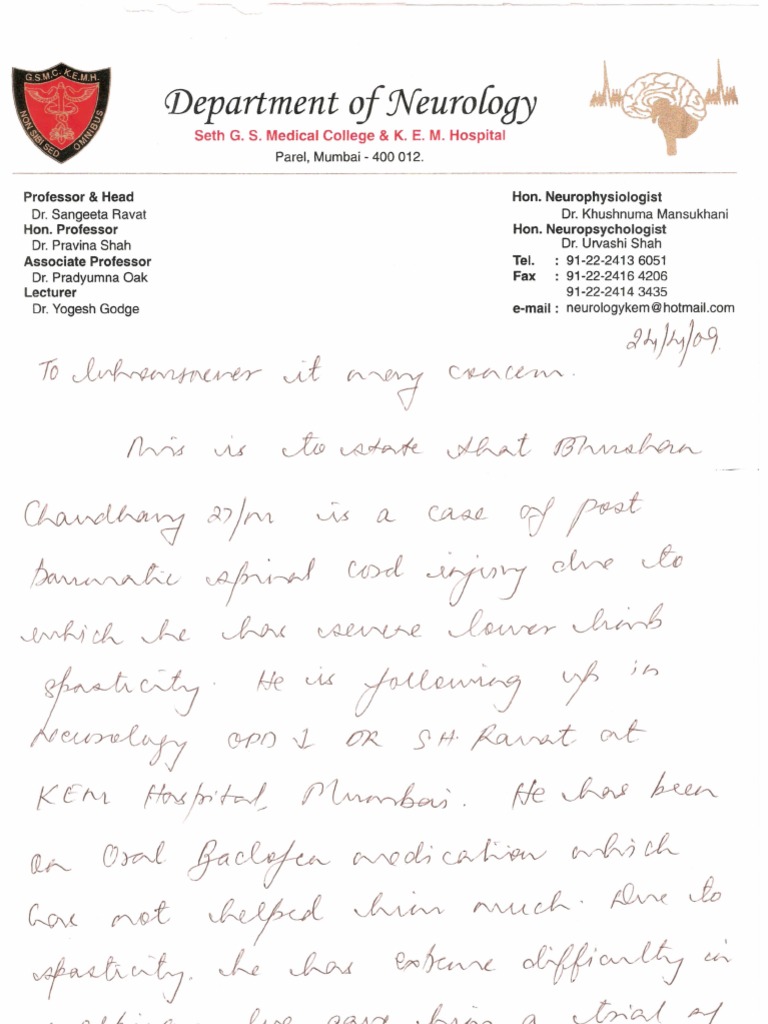 G.S.M.C. K.E.M.H.
NON SIBI SED OMNIBUS
Department of Neurology
Seth G. S. Medical College & K. E. M. Hospital
Parel, Mumbai - 400 012.
Professor & Head
Dr. Sangeeta Ravat
Hon. Professor
Dr. Pravina Shah
Associate Professor
Dr. Pradyumna Oak
Lecturer
Dr. Yogesh Godge
Hon. Neurophysiologist
Dr. Khushnuma Mansukhani
Hon. Neuropsychologist
Dr. Urvashi Shah
Tel. : 91-22-2413 6051
Fax : 91-22-2416 4206
91-22-2414 3435
e-mail : neurologykem@hotmail.com
24/4/09
To whomsoever it may concern.
This is to state that Bhushan
Chaudhary 27/m is a case of post
traumatic spinal cord injury due to
which he has severe lower limb
spasticity. He is following up in
Neurology OPD I DR S.H. Ravat at
KEM Hospital, Mumbai. He has been
on Oral Baclofen medication which
has not helped him much. Due to
spasticity, he has extreme difficulty in
We gave him a trial of